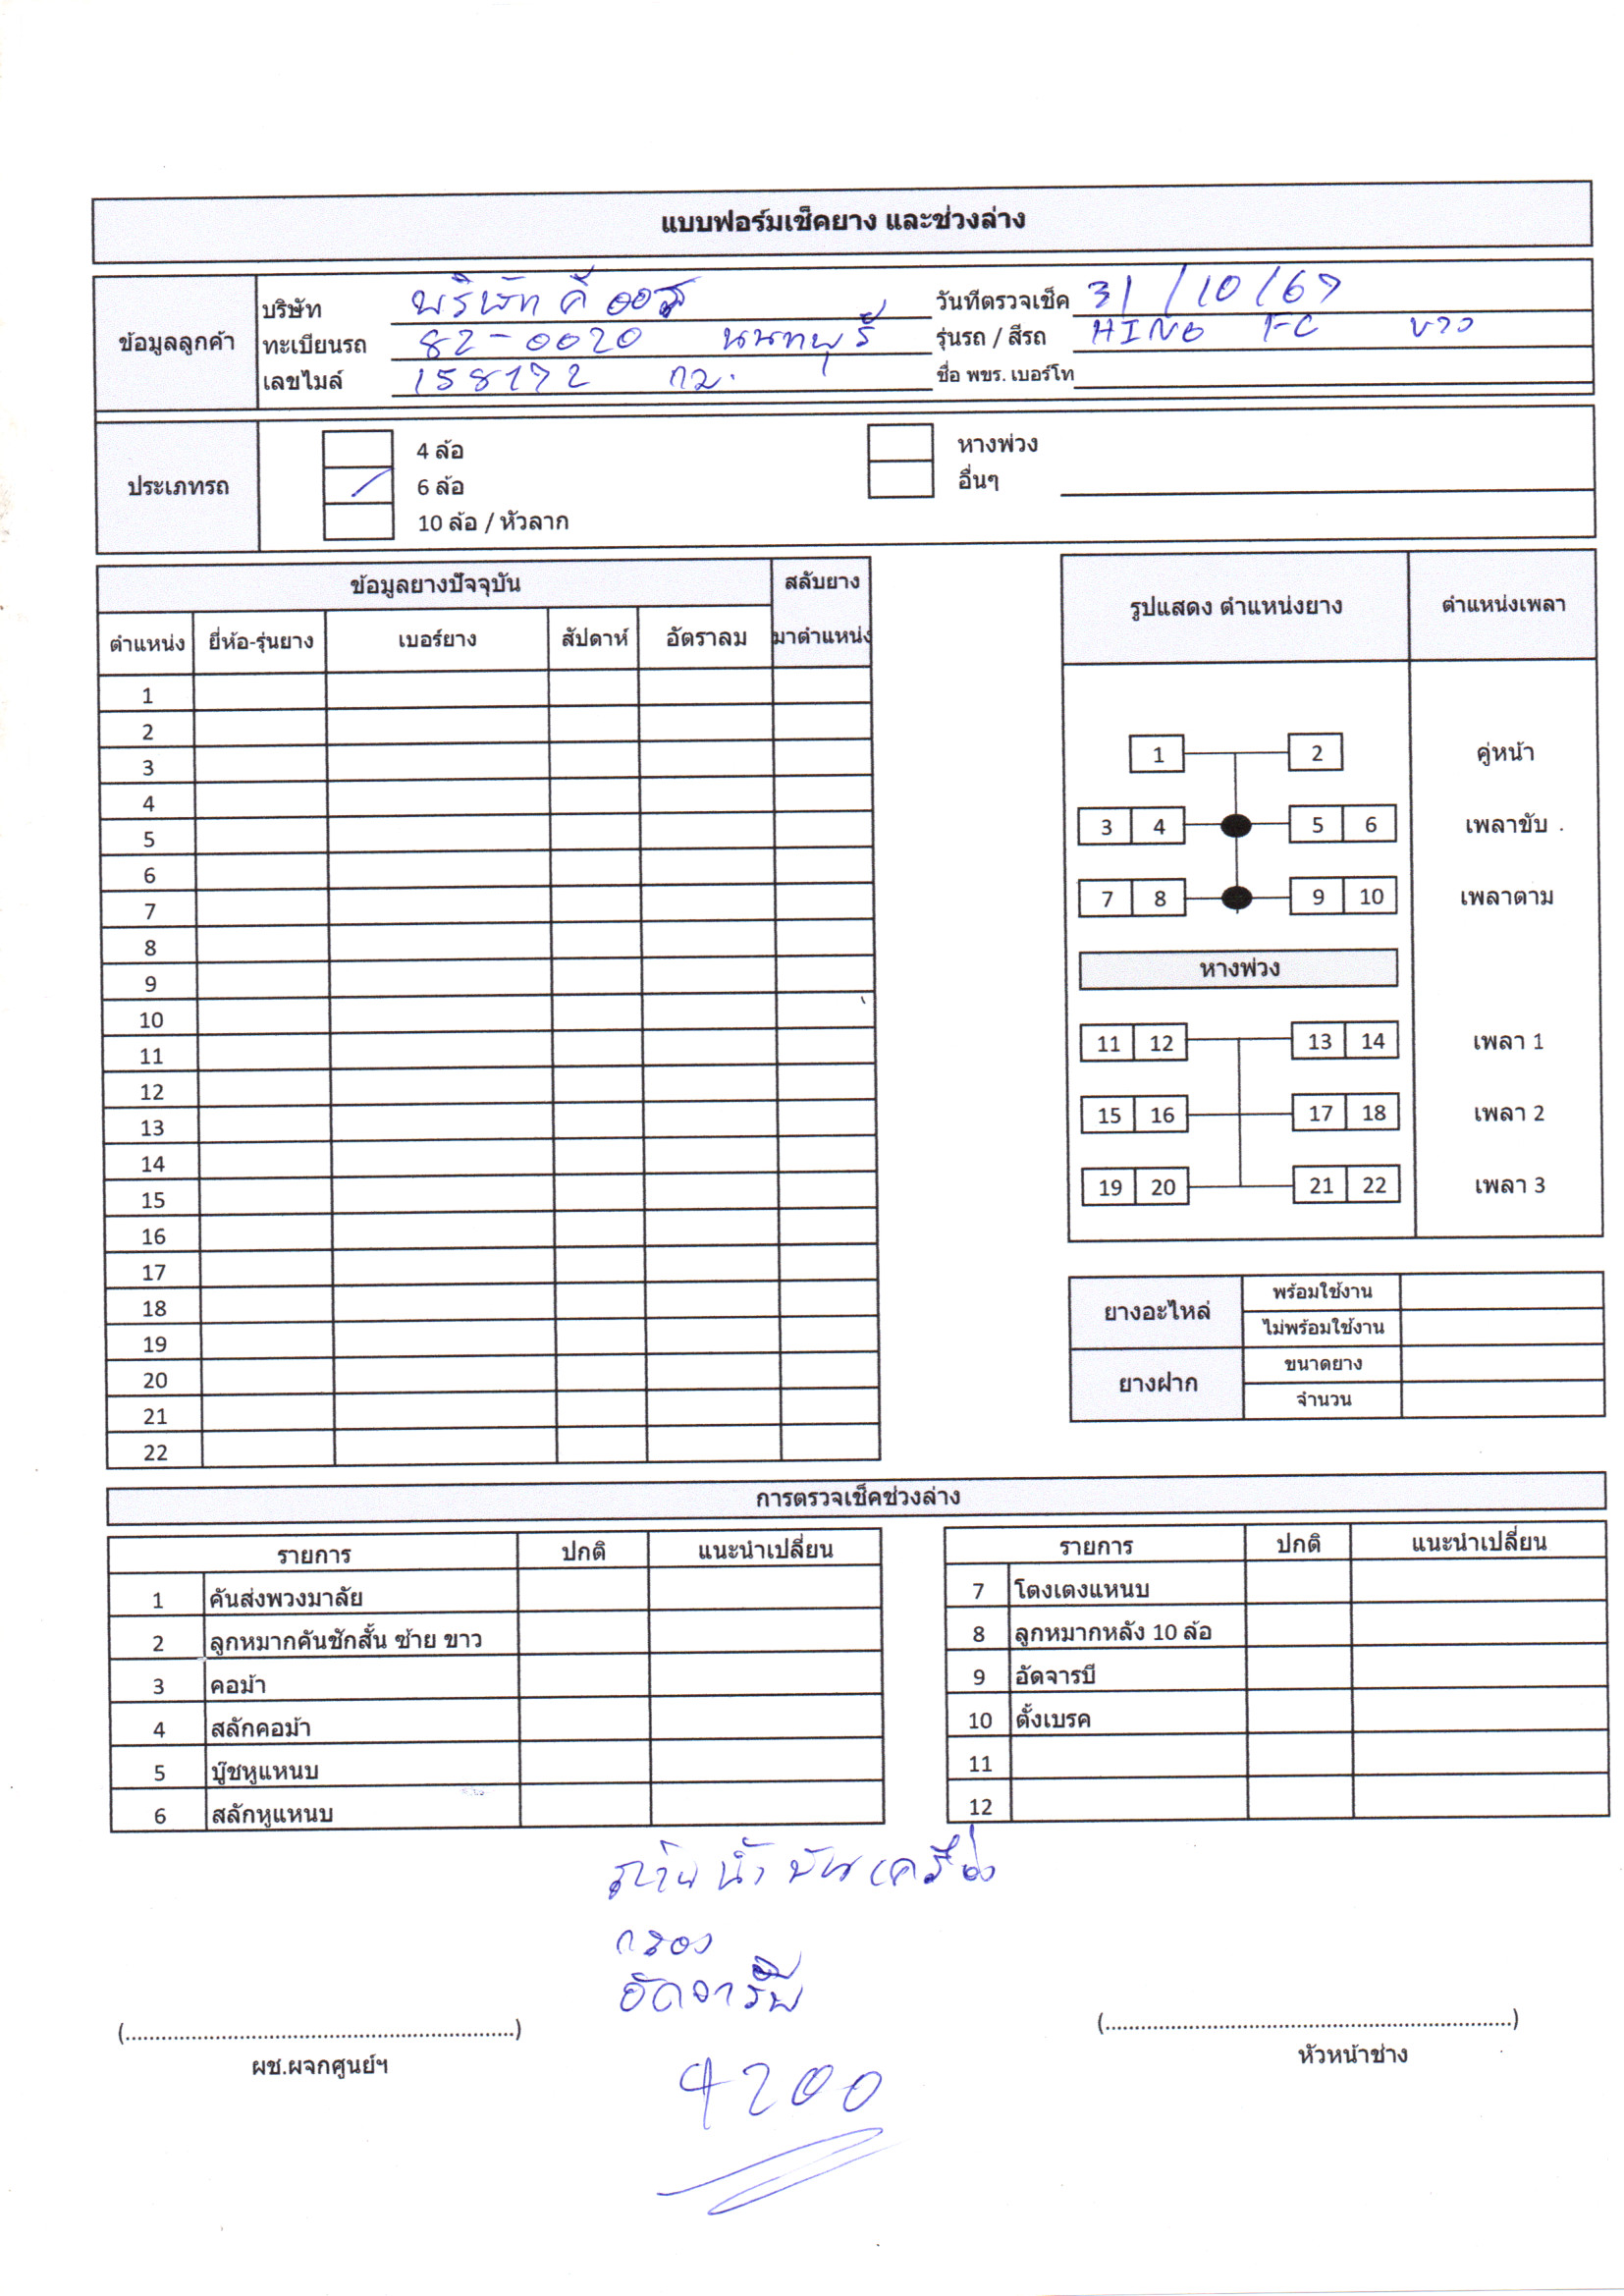 แบบฟอร์มเช็คยาง และช่วงล่าง
ข้อมูลลูกค้า
บริษัท บริษัท คี
วันที่ตรวจเช็ค 31/10/67
ทะเบียนรถ 82-0020 นนทบุรี
รุ่นรถ / สีรถ HINO FC ขาว
เลขไมล์ 158172 กม.
ชื่อ พขร. เบอร์โท
ประเภทรถ
4 ล้อ
6 ล้อ
10 ล้อ / หัวลาก
หางพ่วง
อื่นๆ
ข้อมูลยางปัจจุบัน สลับยาง
ตำแหน่ง ยี่ห้อ-รุ่นยาง เบอร์ยาง สัปดาห์ อัตราลม มาตำแหน่ง
1
2
3
4
5
6
7
8
9
10
11
12
13
14
15
16
17
18
19
20
21
22
รูปแสดง ตำแหน่งยาง ตำแหน่งเพลา
1 2 คู่หน้า
3 4 5 6 เพลาขับ
7 8 9 10 เพลาตาม
หางพ่วง
11 12 13 14 เพลา 1
15 16 17 18 เพลา 2
19 20 21 22 เพลา 3
ยางอะไหล่ พร้อมใช้งาน
ไม่พร้อมใช้งาน
ยางฝาก ขนาดยาง
จำนวน
การตรวจเช็คช่วงล่าง
รายการ ปกติ แนะนำเปลี่ยน
1 คันส่งพวงมาลัย
2 ลูกหมากคันชักสั้น ซ้าย ขาว
3 คอม้า
4 สลักคอม้า
5 บู๊ชหูแหนบ
6 สลักหูแหนบ
รายการ ปกติ แนะนำเปลี่ยน
7 โตงเตงแหนบ
8 ลูกหมากหลัง 10 ล้อ
9 อัดจารบี
10 ตั้งเบรค
11
12
ถ่ายน้ำมันเครื่อง
กรอง
อัดจารบี
4200
(..................................................................)
ผช.ผจกศูนย์ฯ
(......................................................................)
หัวหน้าช่าง